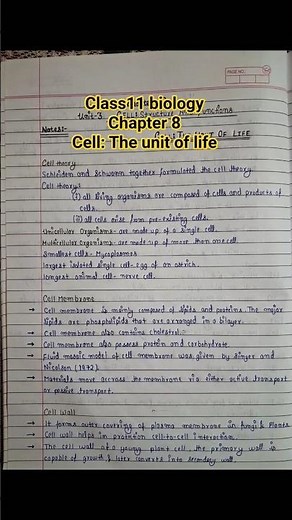 PAGE NO.
Unit-3 Cell: Structure and Functions
Class11 biology
Chapter 8
Cell: The unit of life
Notes:-
OF LIFE
Cell theory
Schleiden and Schwann together formulated the cell theory
Cell theory:
(i) all living organisms are composed of cells and products of
cells.
(ii) all cells arise from pre-existing cells.
Unicellular Organisms- are made up of a single cell.
Multicellular Organisms- are made up of more than one cell.
Smallest cells- Mycoplasmas
largest isolated single cell- egg of an ostrich.
longest animal cell- nerve cell.
Cell Membrane
→ Cell membrane is mainly composed of lipids and proteins. The major
lipids are phospholipids that are arranged in a bilayer.
→ Cell membrane also contains cholestrol.
→ Cell membrane also possess protein and carbohydrate
→ Fluid mosaic model of cell membrane was given by Singer and
Nicolson (1972).
→ Materials move accross the membrane via either active transport
or passive transport.
Cell Wall
→ It forms outer covering of plasma membrane in fungi & Plants.
→ Cell wall helps in protection cell-to-cell interaction.
→ The cell wall of a young plant cell, the primary wall is
capable of growth & later converts into secondary wall.